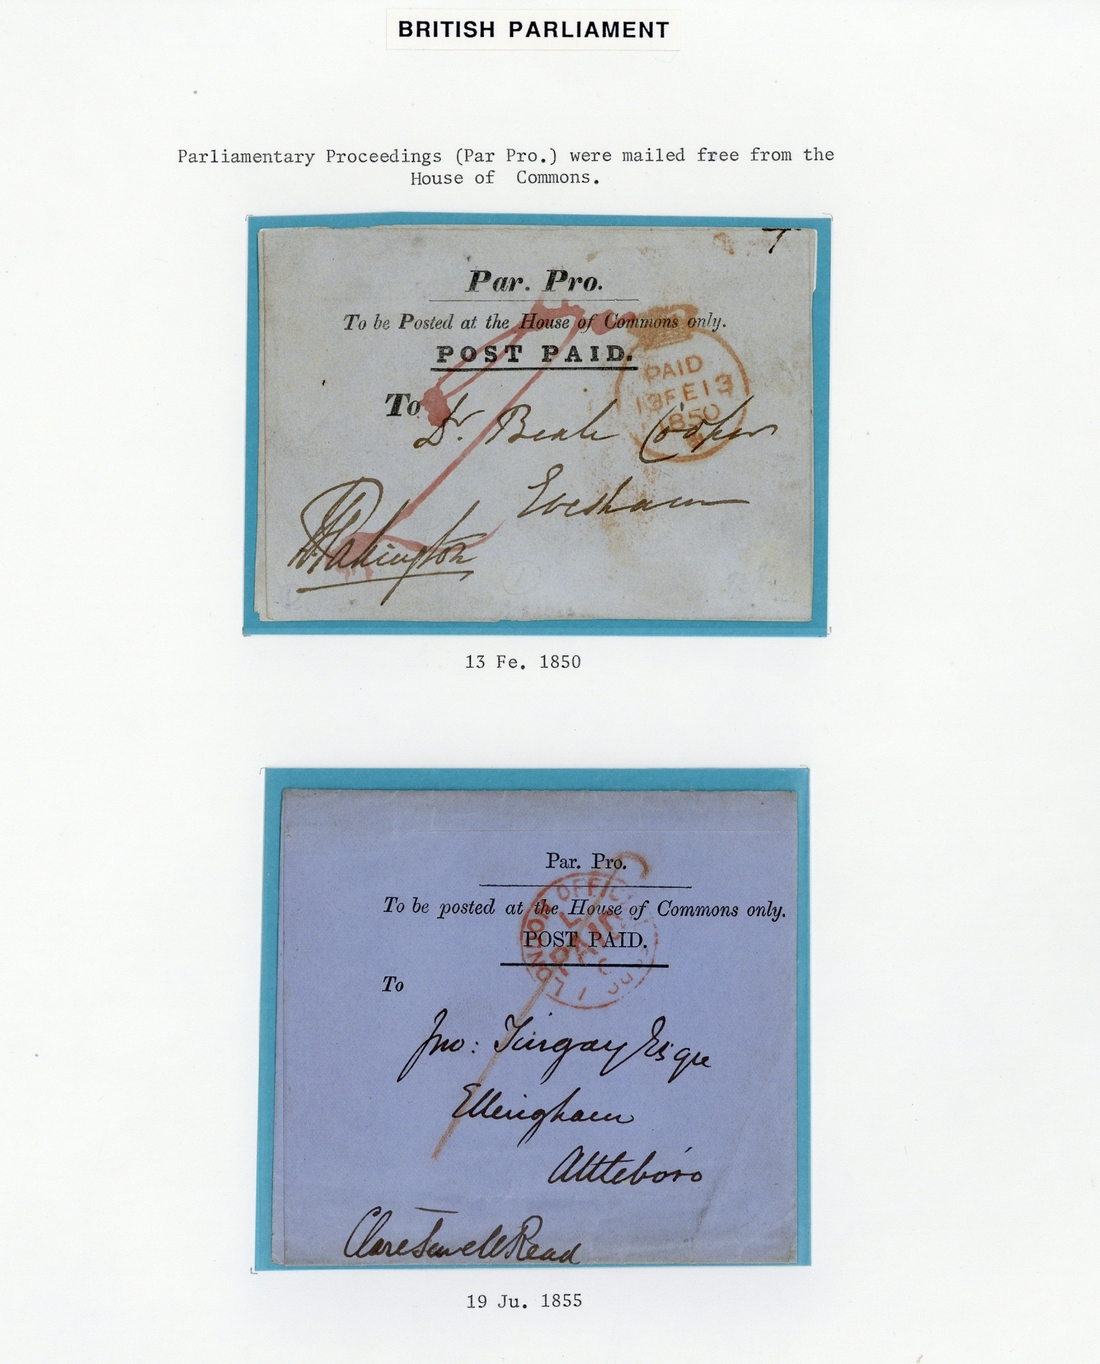 BRITISH PARLIAMENT
Parliamentary Proceedings (Par Pro.) were mailed free from the
House of Commons.
Par. Pro.
To be Posted at the House of Commons only.
POST PAID.
PAID
13 FE 13
1850
To
Dr. Beale Cooper
Evesham
JPakington
13 Fe. 1850
Par. Pro.
To be posted at the House of Commons only.
POST PAID.
PAID
To
Jno: Tingay Esqre
Ellingham
Attleboro
Clare Sewell Read
19 Ju. 1855